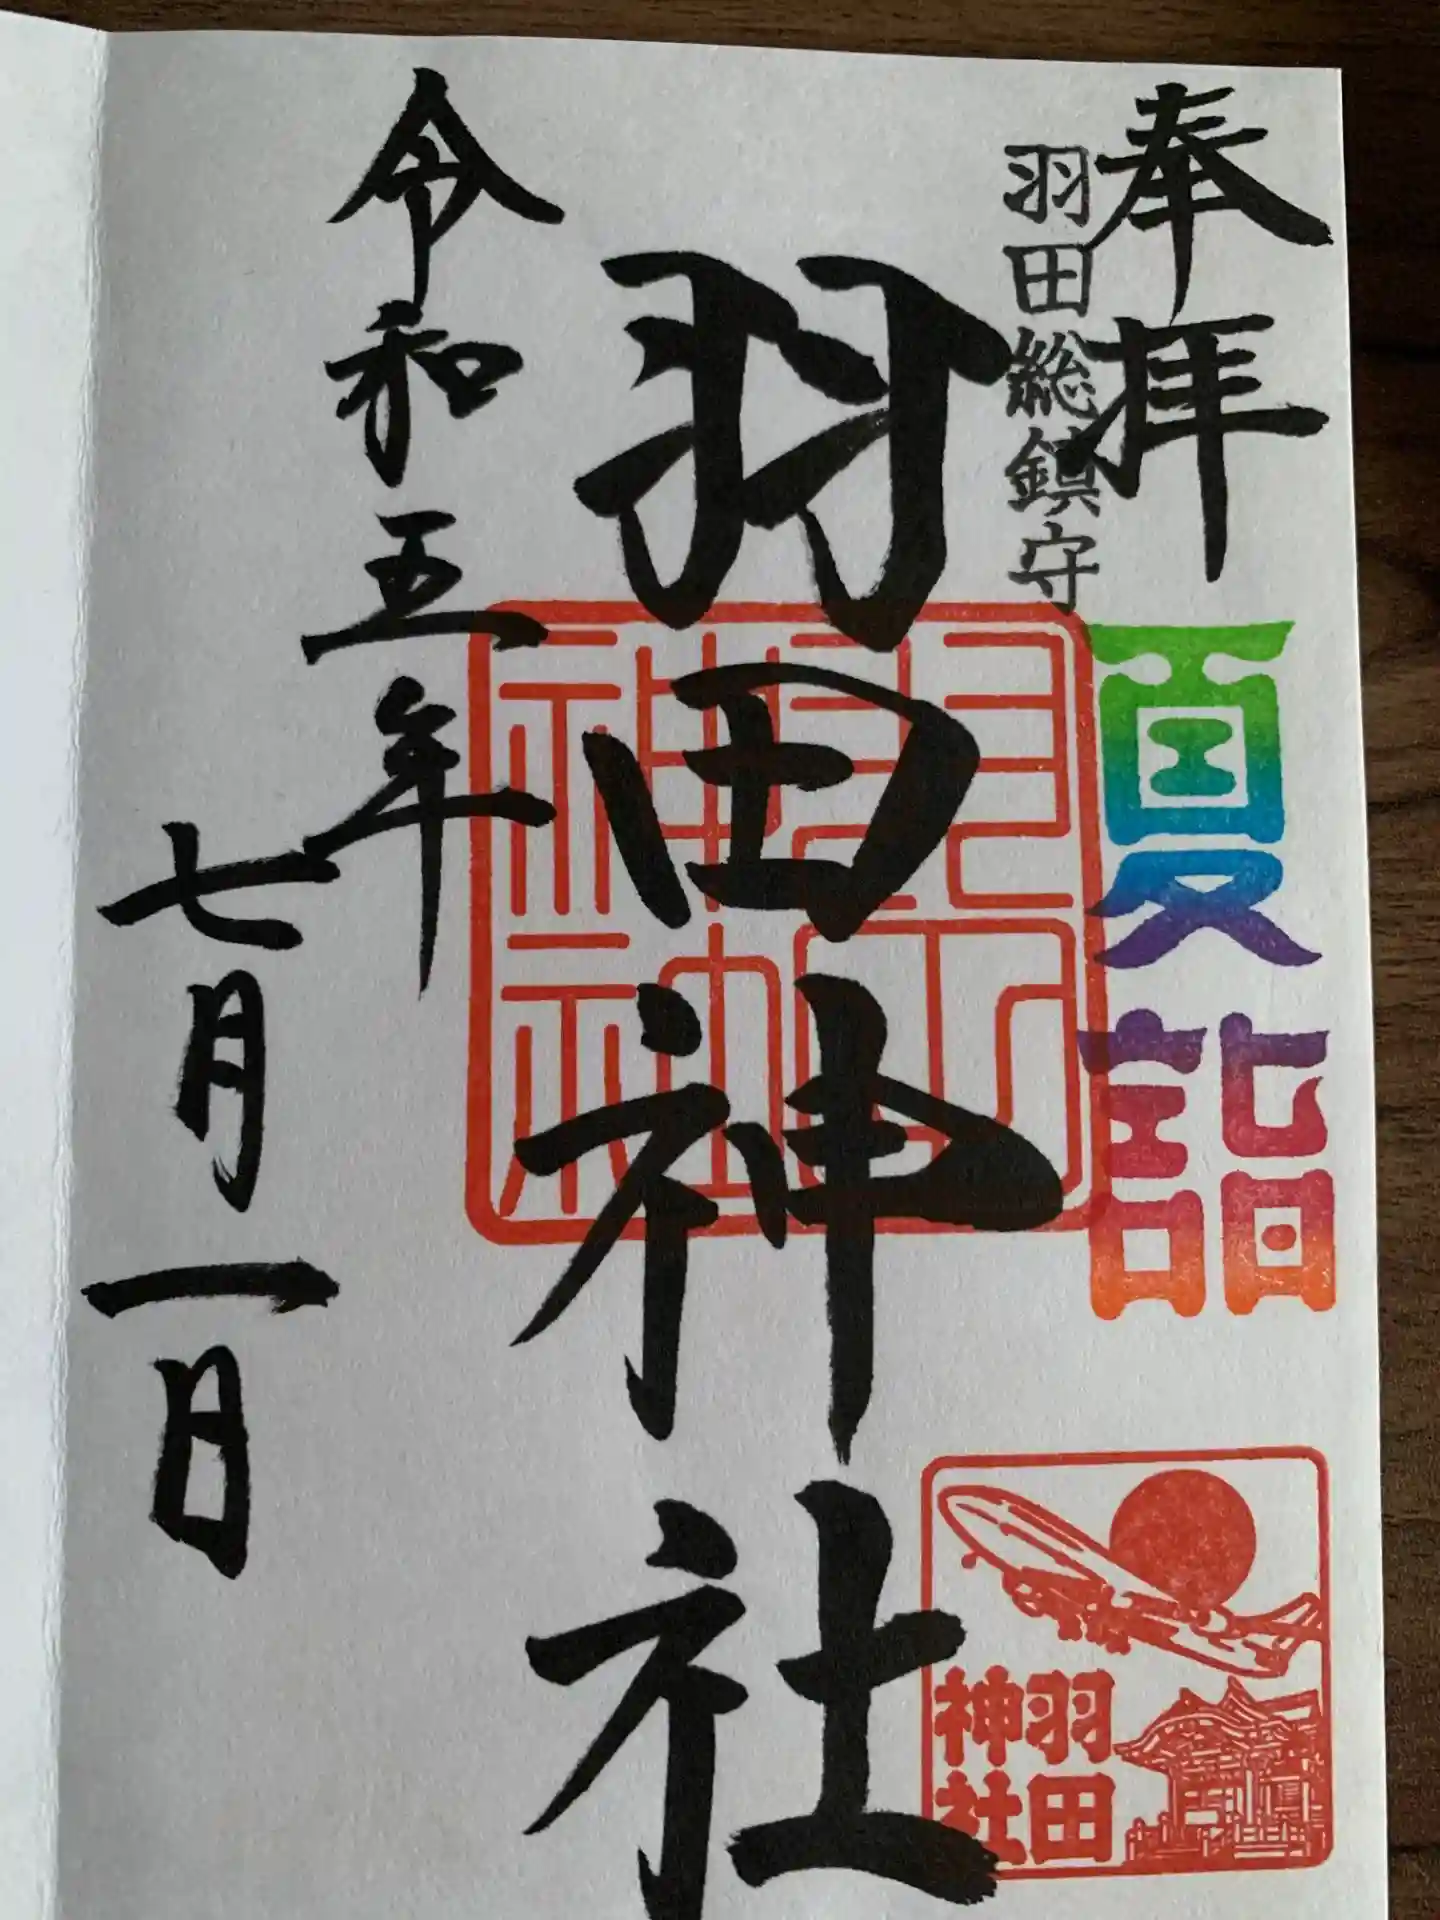 奉拝
羽田総鎮守
夏詣
羽田神社
羽田
神社
羽田
神社
令和五年
七月一日